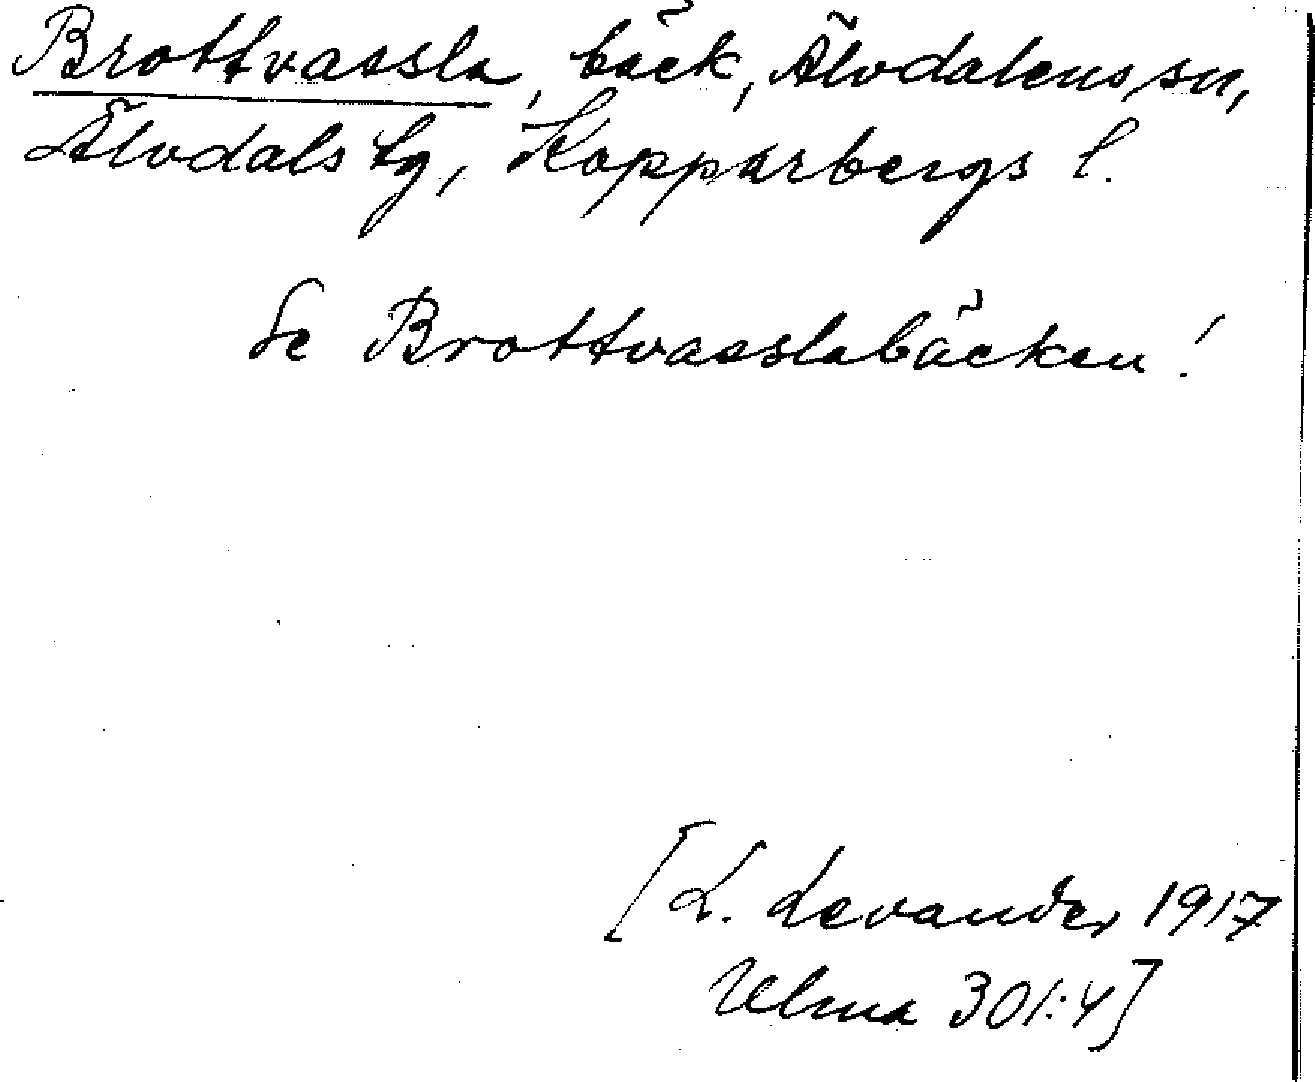 Brottvassla, bäck, Älvdalens sn,
Älvdals tg, Kopparbergs l.
Se Brottvasslabäcken!
[L. Levander 1917
Ulma 301:4]